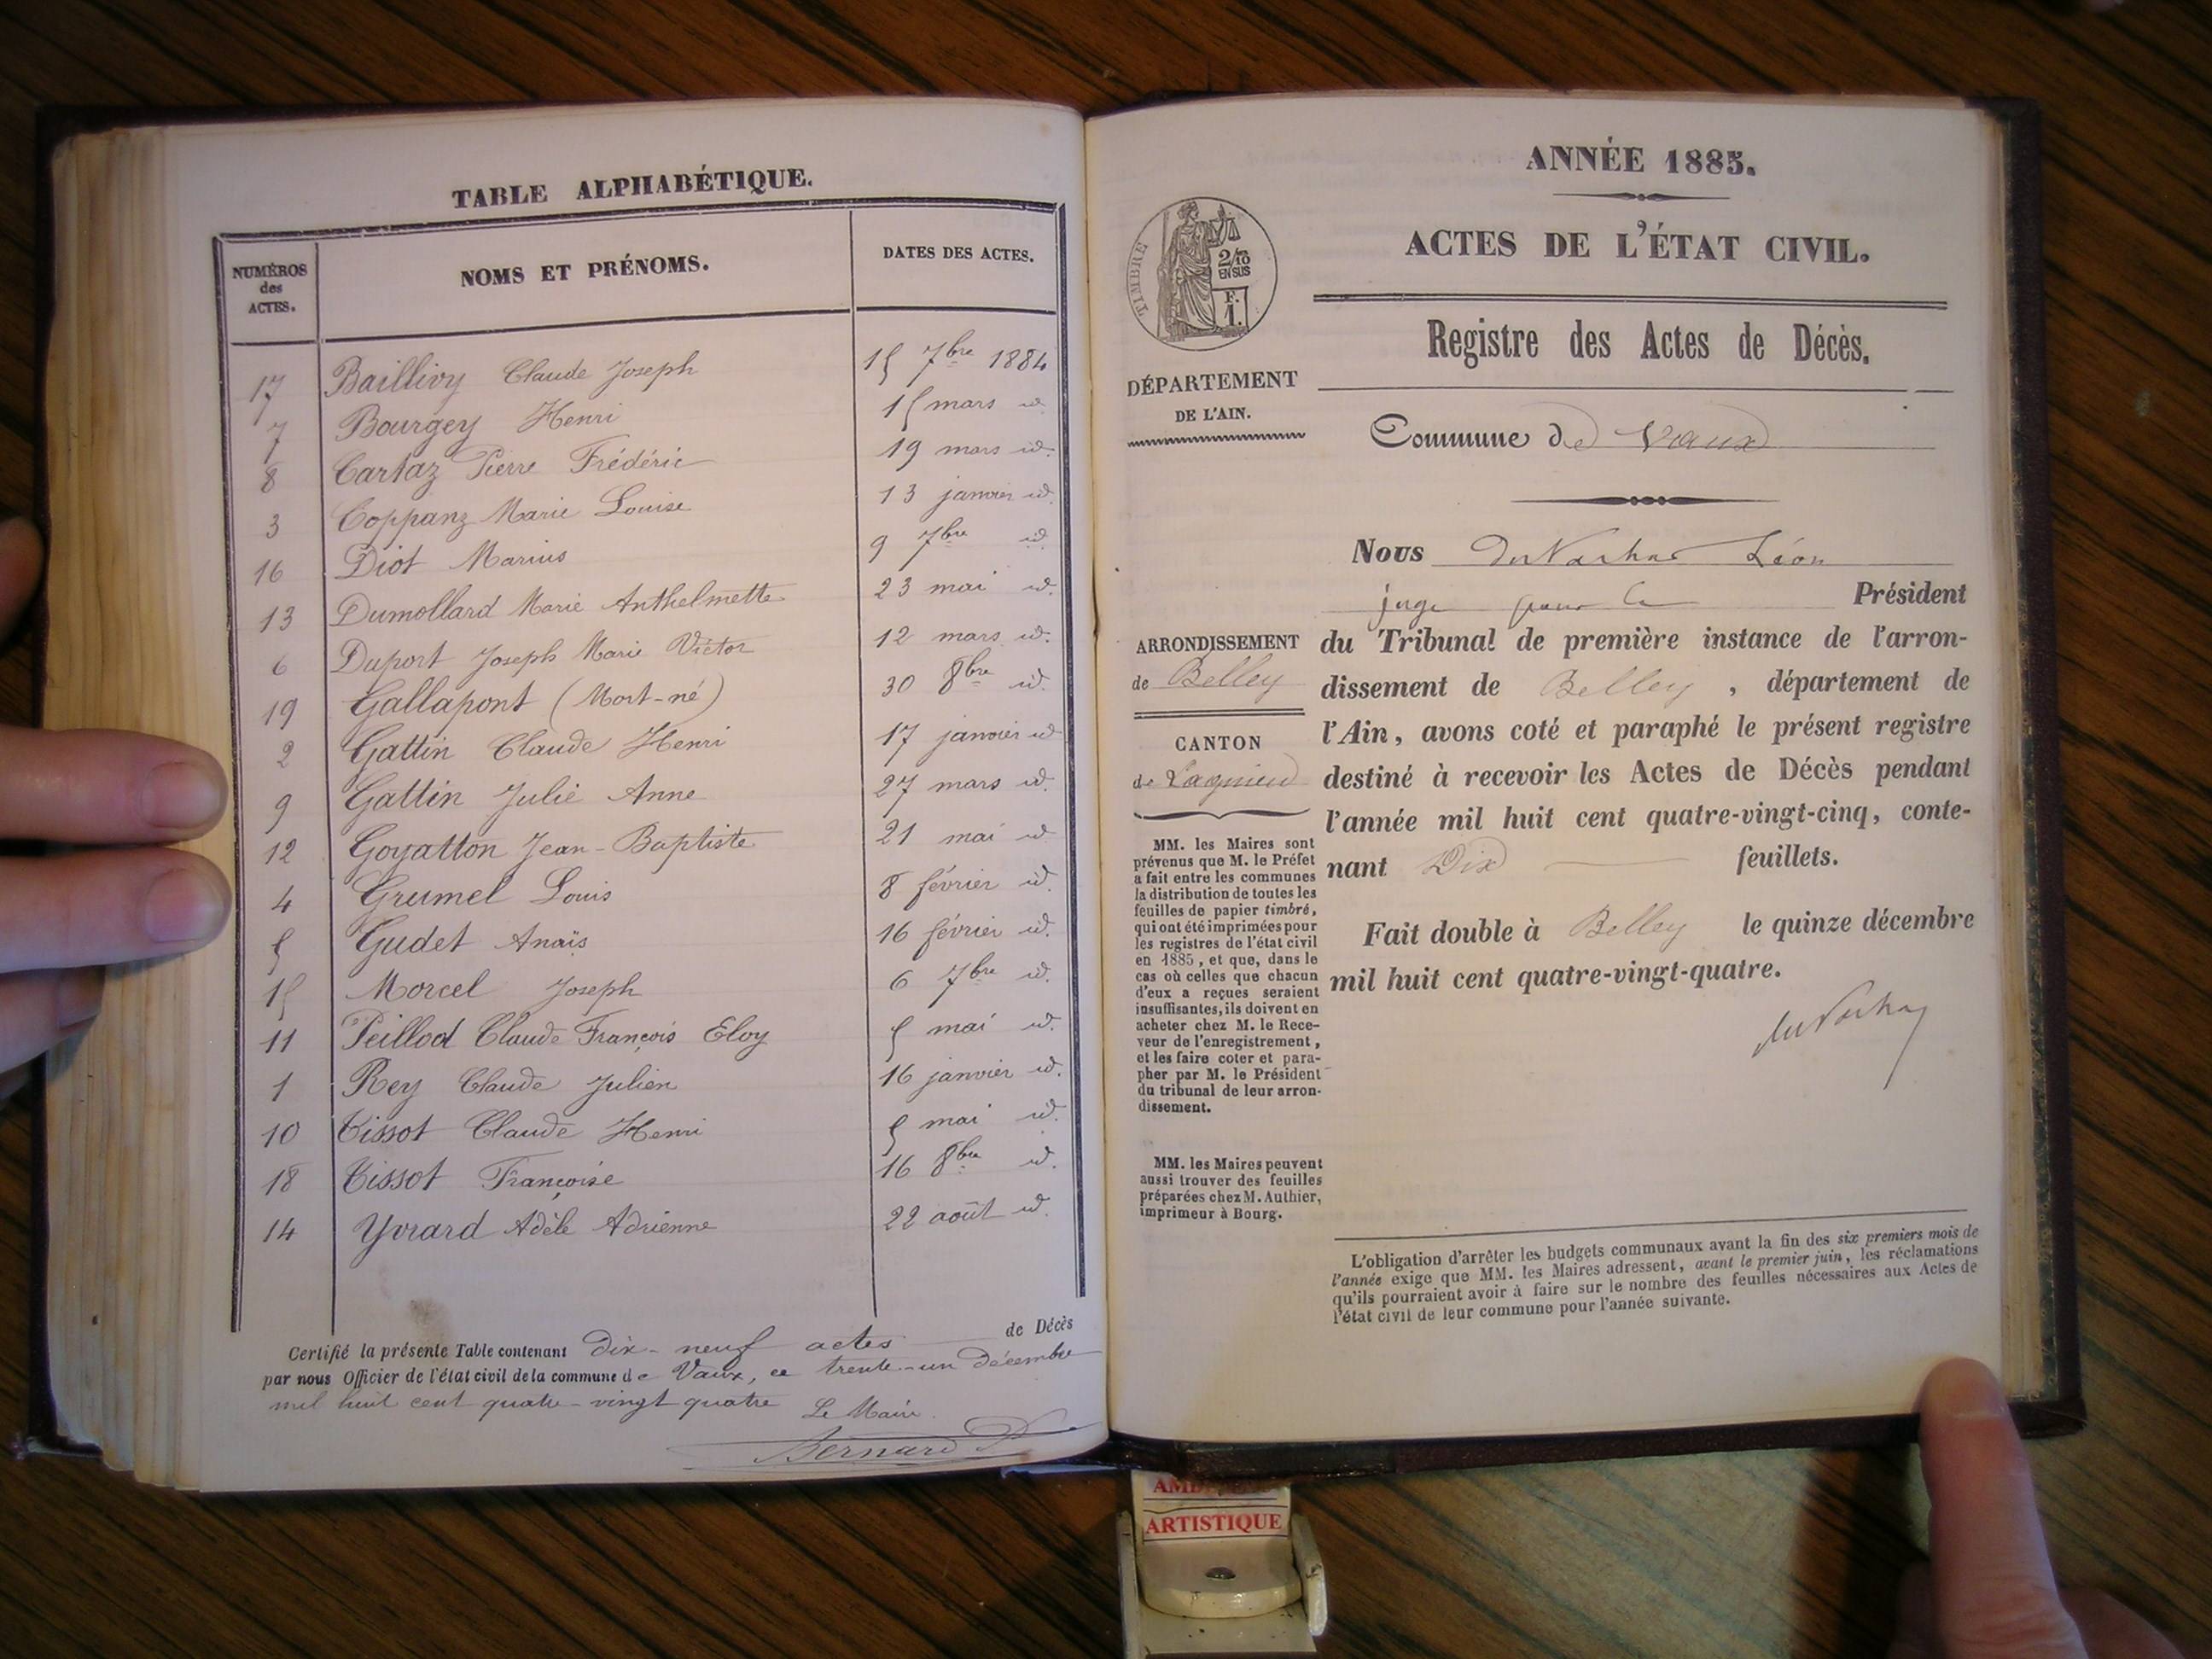 TABLE ALPHABÉTIQUE.
NUMÉROS des ACTES. NOMS ET PRÉNOMS. DATES DES ACTES.
17 Baillivy Claude Joseph 15 7bre 1884
7 Bourgey Henri 15 mars id.
8 Cartaz Pierre Frédéric 19 mars id.
3 Coppanz Marie Louise 13 janvier id.
16 Diot Marius 9 7bre id.
13 Dumollard Marie Anthelmette 23 mai id.
6 Duport Joseph Marie Victor 12 mars id.
19 Gallapont (Mort-né) 30 8bre id.
2 Gattin Claude Henri 17 janvier id
9 Gattin Julie Anne 27 mars id.
12 Goyatton Jean-Baptiste 21 mai id
4 Grumel Louis 8 février id.
5 Gudet Anaïs 16 février id.
15 Morcel Joseph 6 7bre id.
11 Peillod Claude François Eloy 5 mai id.
1 Rey Claude Julien 16 janvier id.
10 Tissot Claude Henri 5 mai id.
18 Tissot Françoise 16 8bre id.
14 Yvrard Adèle Adrienne 22 août id.
Certifié la présente Table contenant dix-neuf actes de Décès
par nous Officier de l'état civil de la commune de Vaux, ce trente-un décembre
mil huit cent quatre-vingt quatre Le Maire.
Bernard
ANNÉE 1885.
ACTES DE L'ÉTAT CIVIL.
TIMBRE
2/10
EN SUS
F.
1.
Registre des Actes de Décès.
DÉPARTEMENT
DE L'AIN.
Commune de Vaux
Nous Léon
juge pour le Président
du Tribunal de première instance de l'arron-
dissement de Belley, département de
l'Ain, avons coté et paraphé le présent registre
destiné à recevoir les Actes de Décès pendant
l'année mil huit cent quatre-vingt-cinq, conte-
nant Dix feuillets.
Fait double à Belley le quinze décembre
mil huit cent quatre-vingt-quatre.
ARRONDISSEMENT
de Belley
CANTON
de Lagnieu
MM. les Maires sont
prévenus que M. le Préfet
a fait entre les communes
la distribution de toutes les
feuilles de papier timbré,
qui ont été imprimées pour
les registres de l'état civil
en 1885, et que, dans le
cas où celles que chacun
d'eux a reçues seraient
insuffisantes, ils doivent en
acheter chez M. le Rece-
veur de l'enregistrement,
et les faire coter et para-
pher par M. le Président
du tribunal de leur arron-
dissement.
MM. les Maires peuvent
aussi trouver des feuilles
préparées chez M. Authier,
imprimeur à Bourg.
L'obligation d'arrêter les budgets communaux avant la fin des six premiers mois de
l'année exige que MM. les Maires adressent, avant le premier juin, les réclamations
qu'ils pourraient avoir à faire sur le nombre des feuilles nécessaires aux Actes de
l'état civil de leur commune pour l'année suivante.
ARTISTIQUE